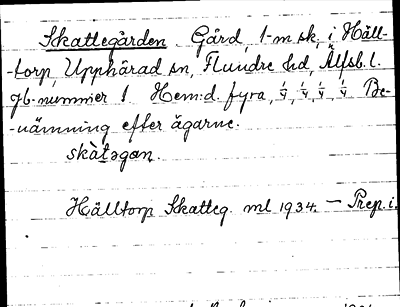 Skattegården. Gård, 1-m sk, i Häll-
-torp, Upphärad sn, Flundre hd, Älfsb. l.
Jb-nummer 1. Hem:d. fyra, ¼, ¼, ¼, ¼ Be-
-nämning efter ägarne.
skàtəgan.
Hälltorp Skatteg. ml 1934. — Prep. i.